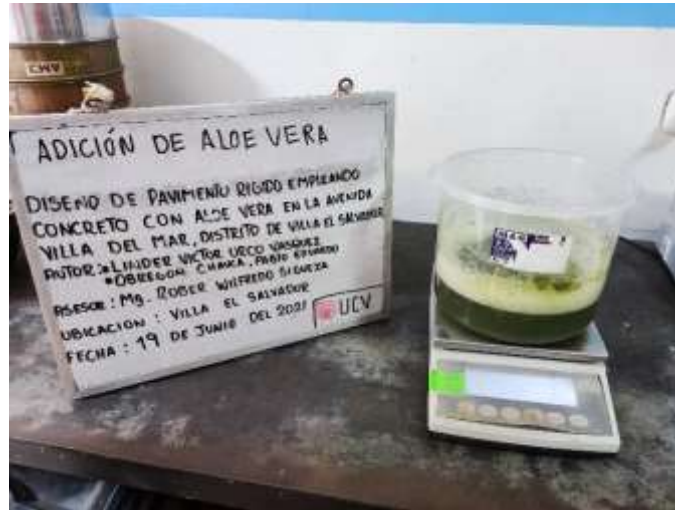 ADICIÓN DE ALOE VERA
DISEÑO DE PAVIMENTO RIGIDO EMPLEANDO
CONCRETO CON ALOE VERA EN LA AVENIDA
VILLA DEL MAR, DISTRITO DE VILLA EL SALVADOR
AUTOR: • LINDER VICTOR URCO VASQUEZ
• OBREGON CHAKA, PABLO EDUARDO
ASESOR: Mg. ROBER WILFREDO SIGUEZA
UBICACION: VILLA EL SALVADOR
FECHA: 19 DE JUNIO DEL 2021
UCV